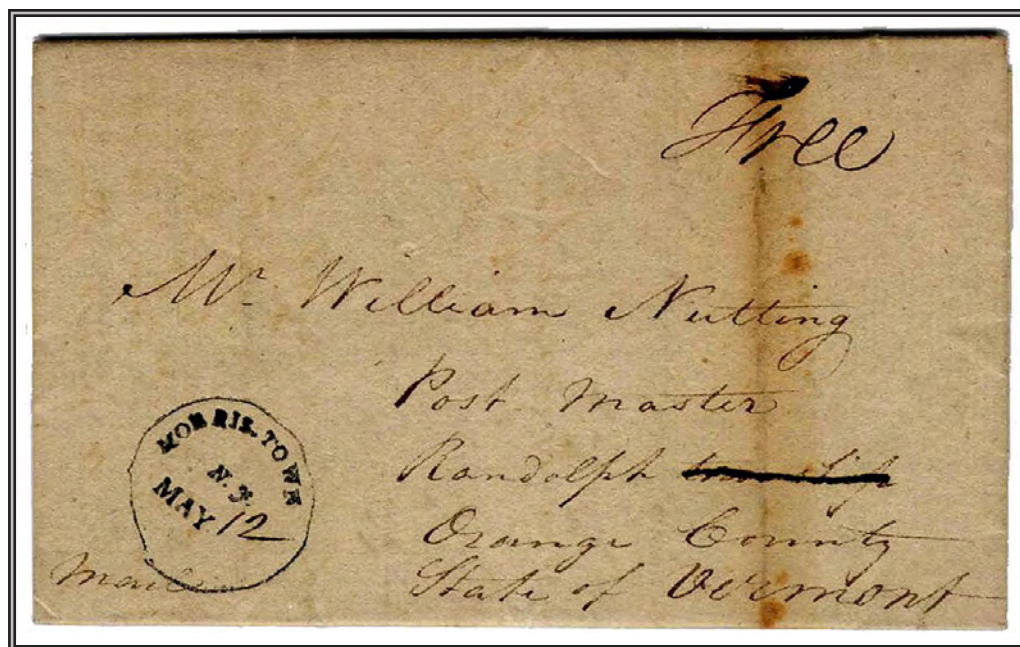 Free
Mr. William Nutting
Post Master
Randolph township
Orange County
State of Vermont
MORRIS-TOWN
N. J.
MAY 12
Mail